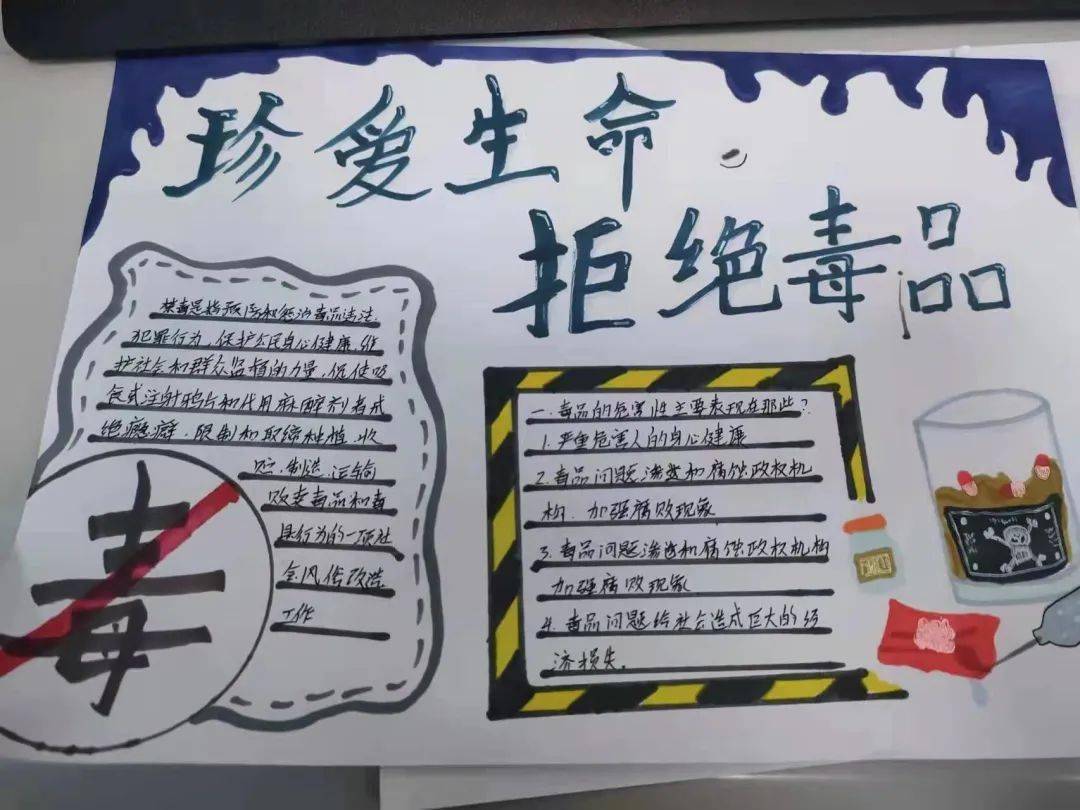 珍爱生命
拒绝毒品
禁毒是指预防和惩治毒品违法
犯罪行为,保护公民身心健康,维
护社会和群众监植的力量,促使吸
食或注射鸦片和代用麻醉剂者戒
绝瘾癖,限制和取缔种植,收
贮,制造,运输
贩卖毒品和毒
具行为的一项社
会风俗改造
工作
毒
一、毒品的危害性主要表现在那些?
1.严重危害人的身心健康
2.毒品问题渗透和腐蚀政权机
构,加强腐败现象
3.毒品问题渗透和腐蚀政权机构
加强腐败现象
4.毒品问题给社会造成巨大的经
济损失.